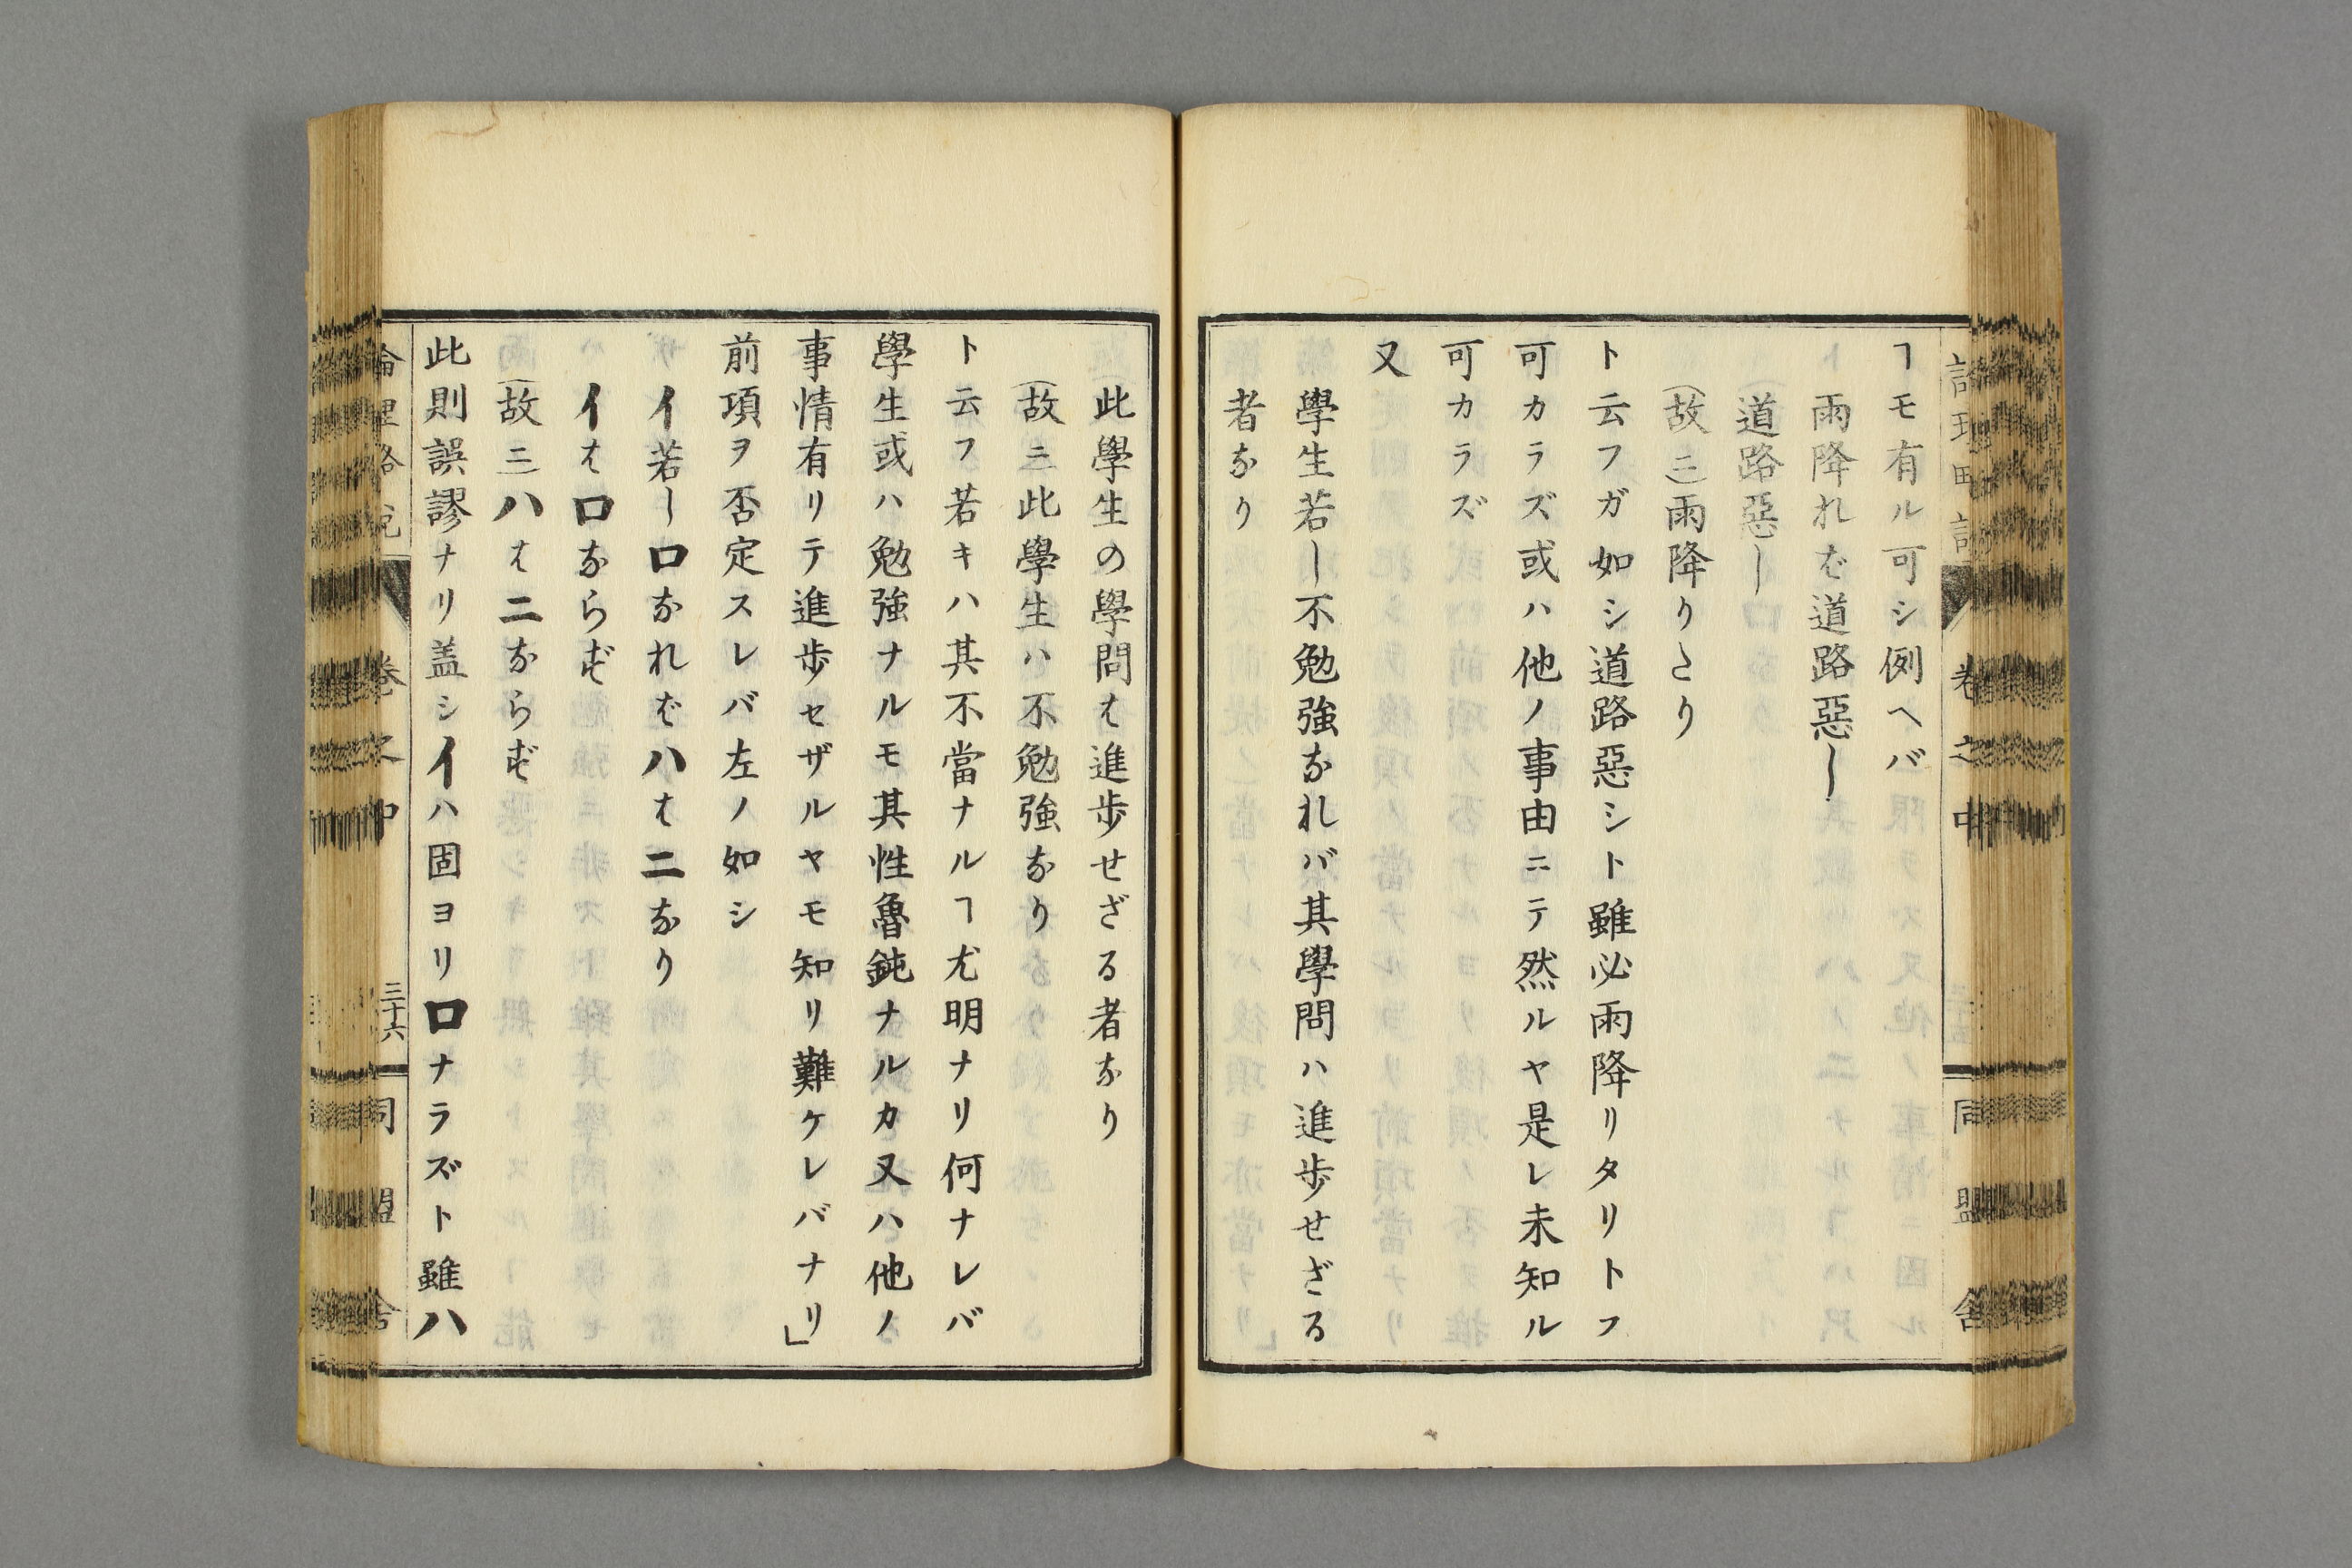 ヿモ有ル可シ例ヘバ
雨降れば道路惡し
道路惡し
(故ニ)雨降りたり
ト云フガ如シ道路惡シト雖必雨降リタリトフ
可カラズ或ハ他ノ事由ニテ然ルヤ是レ未知ル
可カラズ
又
學生若し不勉強なれバ其學問ハ進歩せざる
者なり
此學生の學問は進歩せざる者なり
(故ニ)此學生ハ不勉強なり
ト云フ若キハ其不當ナルヿ尤明ナリ何ナレバ
學生或ハ勉強ナルモ其性魯鈍ナルカ又ハ他ノ
事情有リテ進歩セザルヤモ知リ難ケレバナリ」
前項ヲ否定スレバ左ノ如シ
イ若しロなればハは二なり
イはロならず
(故ニ)ハは二ならず
此則誤謬ナリ盖シイハ固ヨリロナラズト雖ハ
論理略説 卷之中 三十六 同盟舎